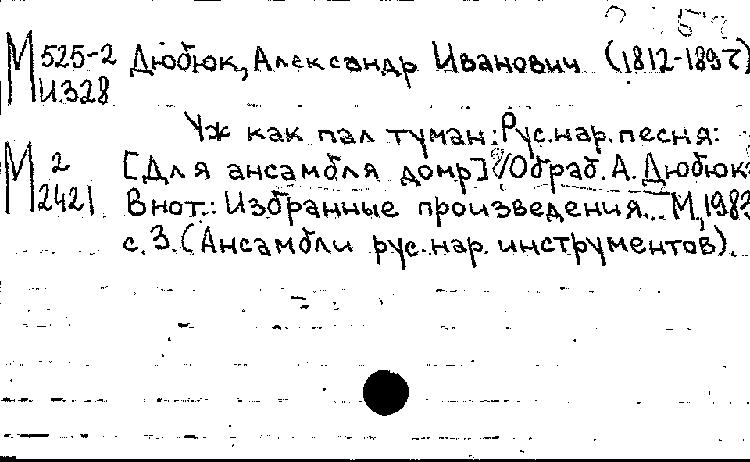 М 525-2 Дюбюк, Александр Иванович (1812-1897)
И328
Уж как пал туман: Рус. нар. песня:
М 2 [Для ансамбля домр] / Обраб. А. Дюбюк.
2421 В нот.: Избранные произведения... М, 1983
с. 3. (Ансамбли рус. нар. инструментов).